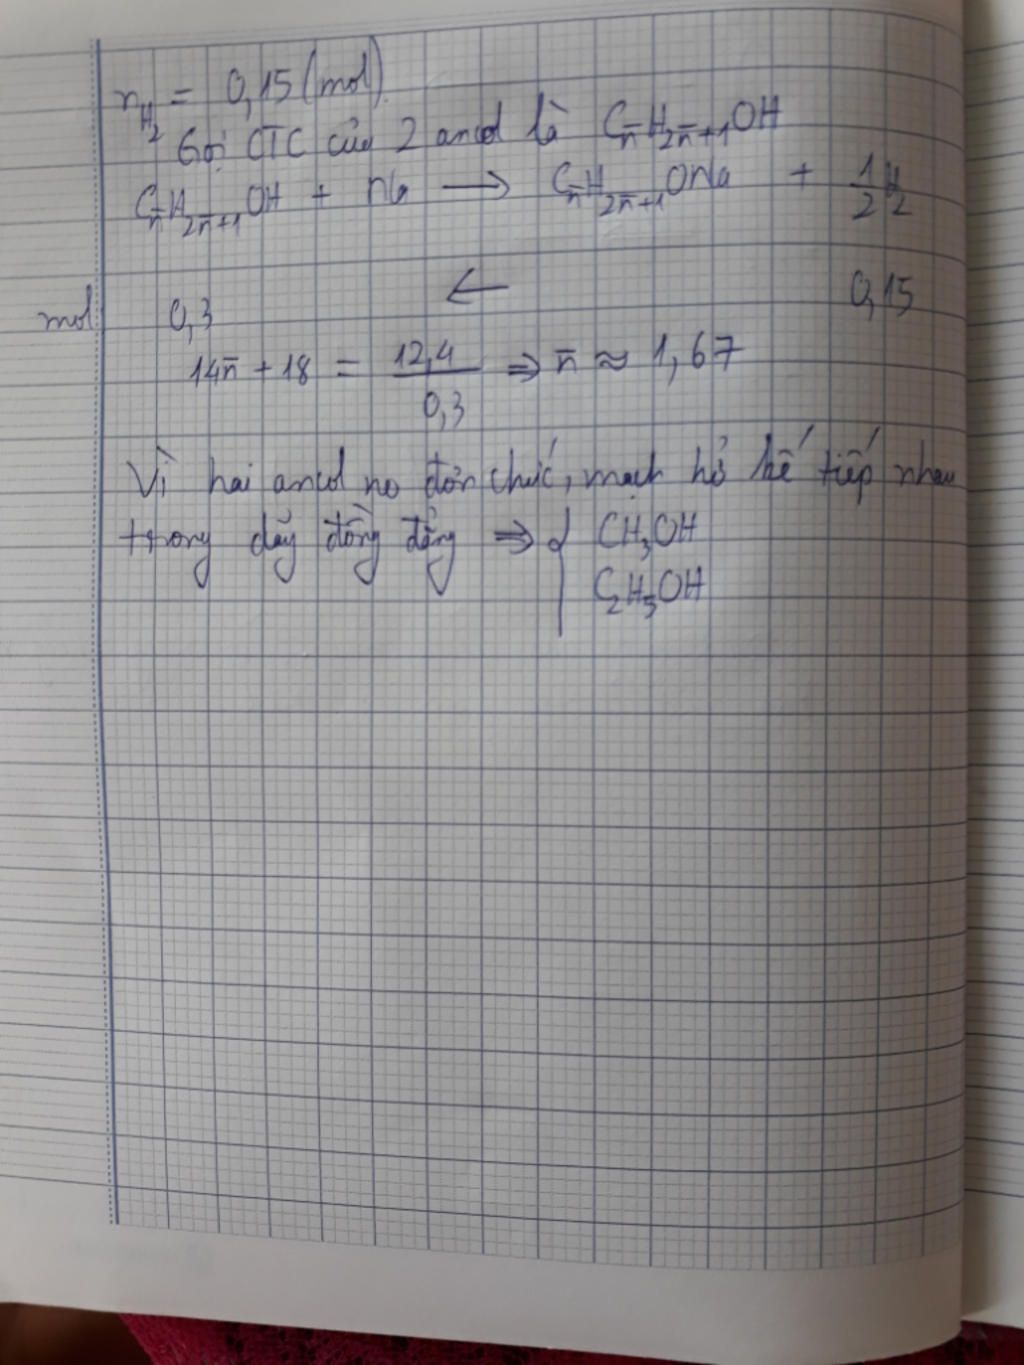 n_H₂ = 0,15 (mol)
Gọi CTC của 2 ancol là Cn̄H2n̄+1OH
Cn̄H2n̄+1OH + Na → Cn̄H2n̄+1ONa + 1/2 H₂
mol 0,3 ← 0,15
14n̄ + 18 = 12,4/0,3 ⇒ n̄ ≈ 1,67
Vì hai ancol no đơn chức, mạch hở kế tiếp nhau
trong dãy đồng đẳng ⇒ { CH₃OH
C₂H₅OH